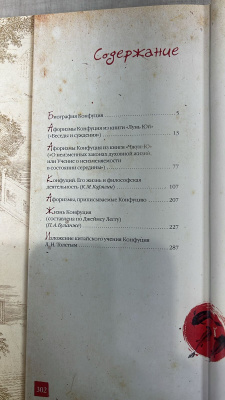 Содержание
Биография Конфуция 5
Афоризмы Конфуция из книги «Лунь-Юй»
(«Беседы и суждения») 13
Афоризмы Конфуция из книги «Чжун-Ю»
(«О неизменных законах духовной жизни,
или Учение о неизменяемости
в состоянии середины») 77
Конфуций. Его жизнь и философская
деятельность (К.М. Карягин) 107
Афоризмы, приписываемые Конфуцию 207
Жизнь Конфуция
(составлена по Джеймсу Леггу)
(П.А. Буланже) 227
Изложение китайского учения Конфуция
Л.Н. Толстым 287
302